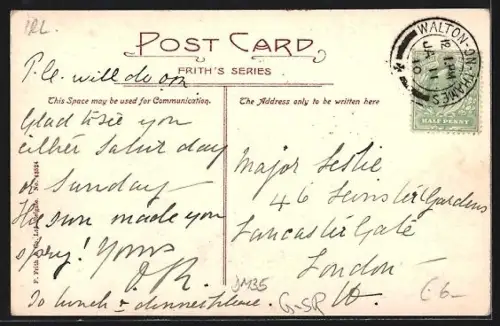 IRL.
POST CARD
FRITH'S SERIES
WALTON-ON-THAMES
12 PM
JA 11
10
HALF PENNY
P.C. will do on
This Space may be used for Communication.
Glad to see you
either Saturday
or Sunday
The sun made you
spry! Yours
J.R.
To lunch or dinner please.
F. Frith & Co., Ltd., Reigate. No.
The Address only to be written here
Major Leslie
46 Leinster Gardens
Lancaster Gate
London
W.
DM35
GSR
£6-